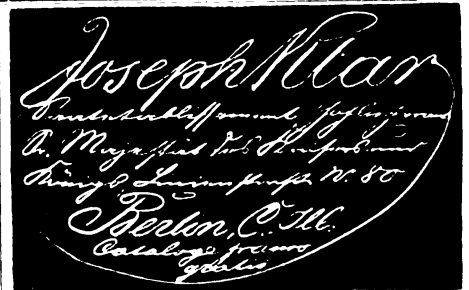 Joseph Klar
Samenetablissement, Hoflieferant
Sr. Majestät des Kaisers und
Königs, Linienstraße N. 80
Berlin, C. 
Cataloge franco
gratis